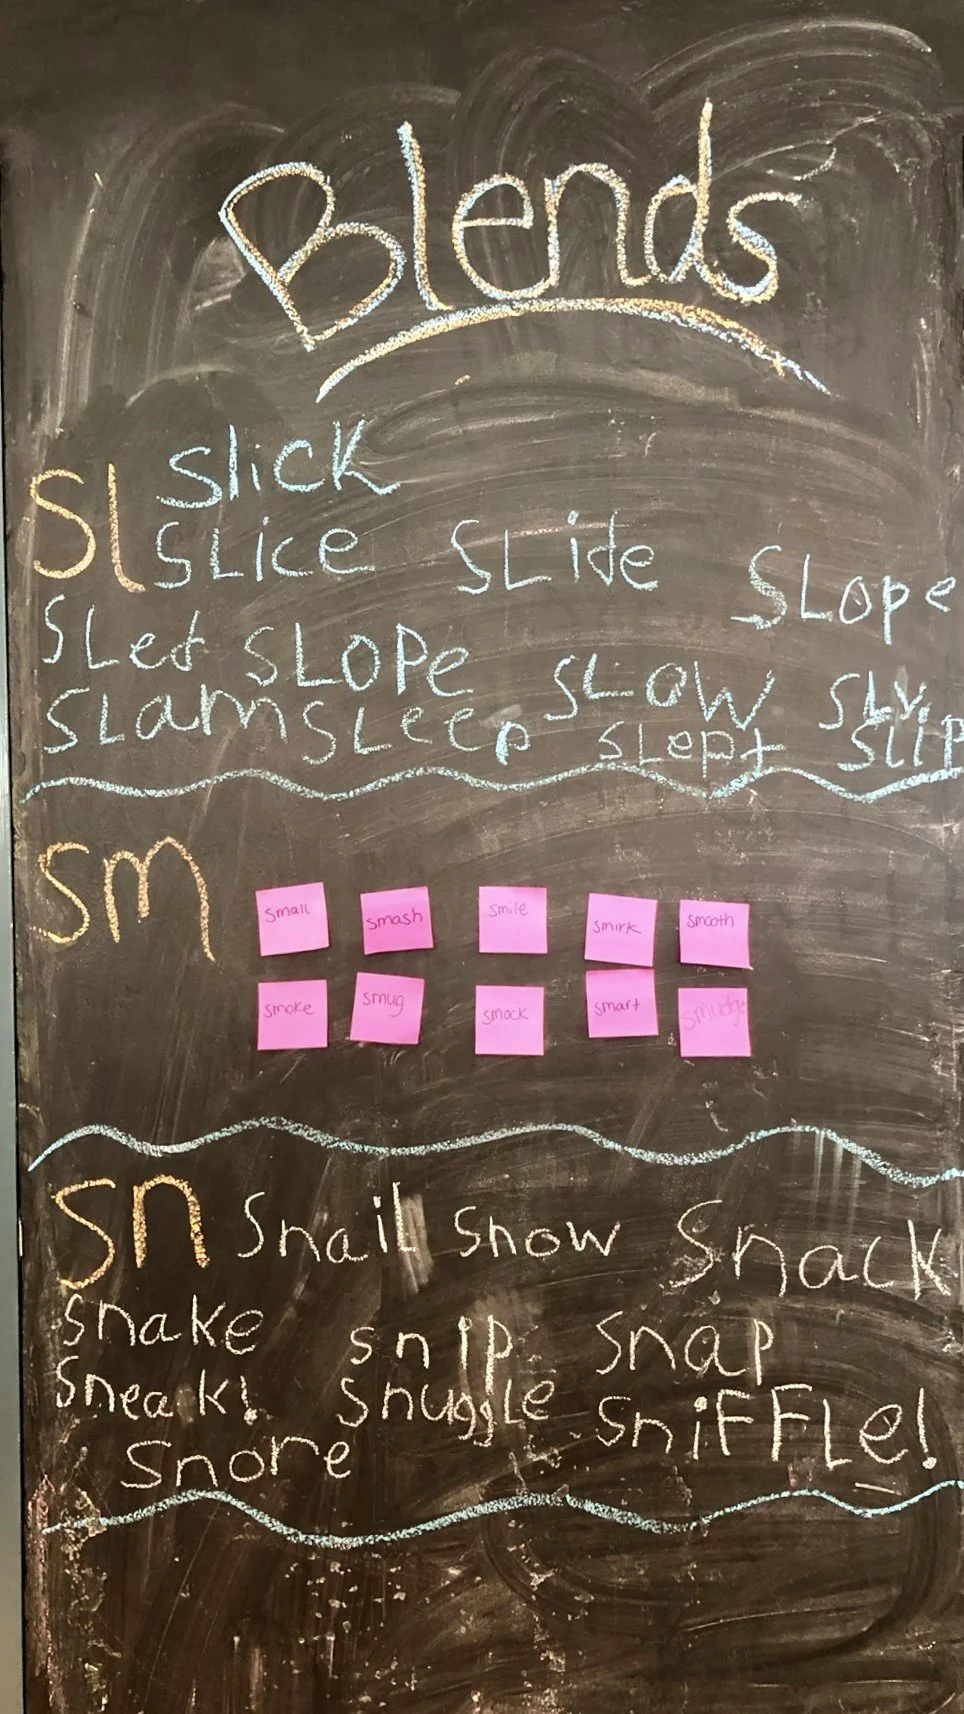 Blends
Sl slick
SLice SLide SLope
SLet SLOPe SLOW
SLam SLeep SLept SLip
Sm
small smash smile smirk smooth
smoke smug smock smart smudge
Sn Snail Snow Snack
snake snip snap
Sneak! Snuggle SniFFLe!
Snore